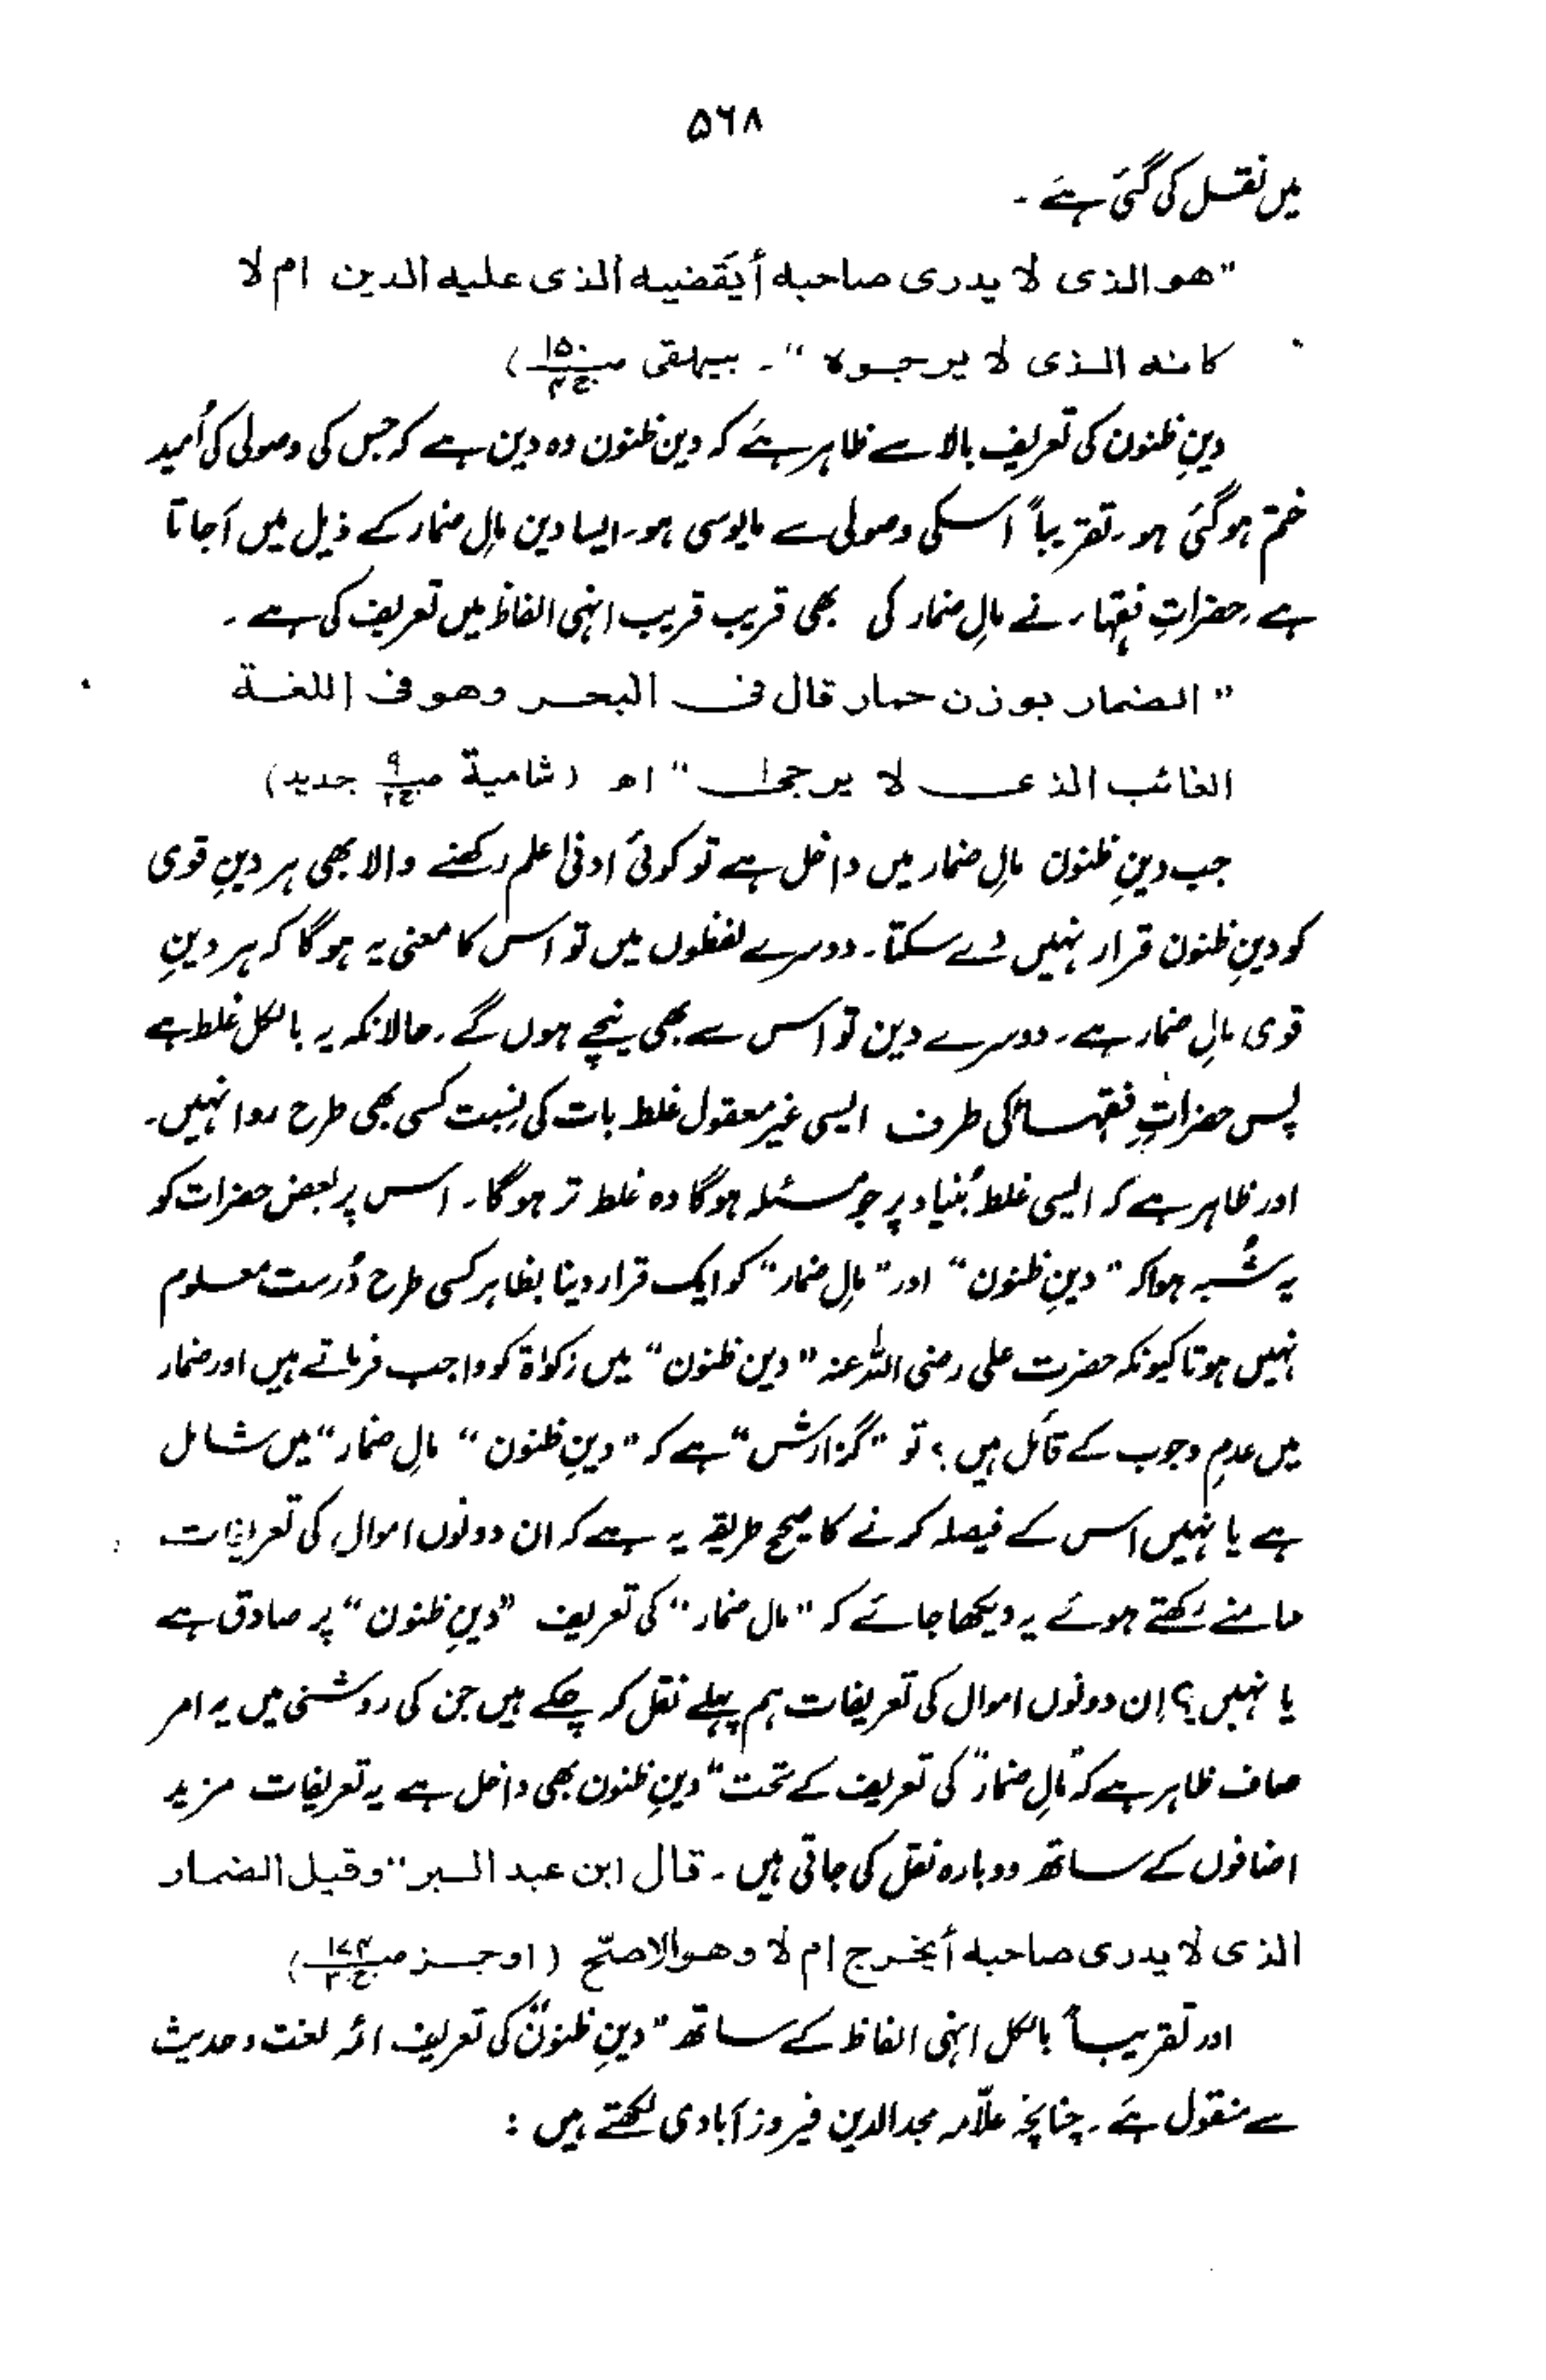 ۵۶۸
میں نقل کی گئی ہے ۔
"هو الذی لا یدری صاحبه أیقضیه الذی علیه الدین ام لا
کانه الذی لا یرجوه" ۔ بیہقی ص۱۵۰ ج۴)
دینِ ظنون کی تعریف بالا سے ظاہر ہے کہ دین ظنون وہ دین ہے کہ جس کی وصولی کی اُمید
ختم ہو گئی ہو ۔ تقریباً اسکی وصولی سے مایوسی ہو ۔ ایسا دین مالِ ضمار کے ذیل میں آجاتا
ہے ۔ حضراتِ فقہاء نے مالِ ضمار کی بھی قریب قریب انہی الفاظ میں تعریف کی ہے ۔
"الضمار بوزن حمار قال فی البحر وهو فی اللغة
الغائب الذی لا یرجیٰ" اھ (شامیة ص۹ ج۲ جدید)
جب دینِ ظنون مالِ ضمار میں داخل ہے تو کوئی ادنیٰ علم رکھنے والا بھی ہر دینِ قوی
کو دینِ ظنون قرار نہیں دے سکتا ۔ دوسرے لفظوں میں تو اس کا معنی یہ ہوگا کہ ہر دینِ
قوی مالِ ضمار ہے ۔ دوسرے دین تو اس سے بھی نیچے ہوں گے ۔ حالانکہ یہ بالکل غلط ہے
پس حضراتِ فقہاء کی طرف ایسی غیر معقول غلط بات کی نسبت کسی بھی طرح روا نہیں ۔
اور ظاہر ہے کہ ایسی غلط بُنیاد پر جو مسئلہ ہوگا وہ غلط تر ہوگا ۔ اس پر بعض حضرات کو
یہ شُبہ ہوا کہ "دینِ ظنون" اور "مالِ ضمار" کو ایک قرار دینا بظاہر کسی طرح دُرست معلوم
نہیں ہوتا کیونکہ حضرت علی رضی اللہ عنہ "دین ظنون" میں زکواۃ کو واجب فرماتے ہیں اور ضمار
میں عدمِ وجوب کے قائل ہیں ؛ تو "گزارش" ہے کہ "دینِ ظنون" مالِ ضمار" میں شامل
ہے یا نہیں اس کے فیصلہ کرنے کا صحیح طریقہ یہ ہے کہ ان دونوں اموال کی تعریفات
سامنے رکھتے ہوئے یہ دیکھا جائے کہ "مال ضمار" کی تعریف "دینِ ظنون" پر صادق ہے
یا نہیں ؟ ان دونوں اموال کی تعریفات ہم پہلے نقل کر چکے ہیں جن کی روشنی میں یہ امر
صاف ظاہر ہے کہ "مالِ ضمار" کی تعریف کے تحت "دینِ ظنون بھی داخل ہے یہ تعریفات مزید
اضافوں کے ساتھ دوبارہ نقل کی جاتی ہیں ۔ قال ابن عبد البر "وقیل الضمار
الذی لا یدری صاحبه أیخرج ام لا وهو الاصحّ (اوجز ص۱۷۴ ج۳)
اور تقریباً بالکل انہی الفاظ کے ساتھ "دینِ ظنون" کی تعریف ائمہ لغت و حدیث
سے منقول ہے ۔ چنانچہ علّامہ مجدالدین فیروزآبادی لکھتے ہیں :